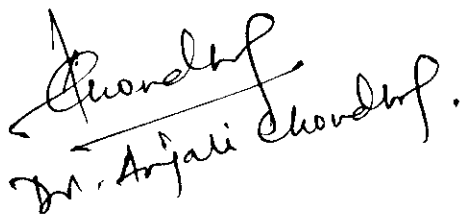 Chondhry
Dr. Anjali Chondhry.